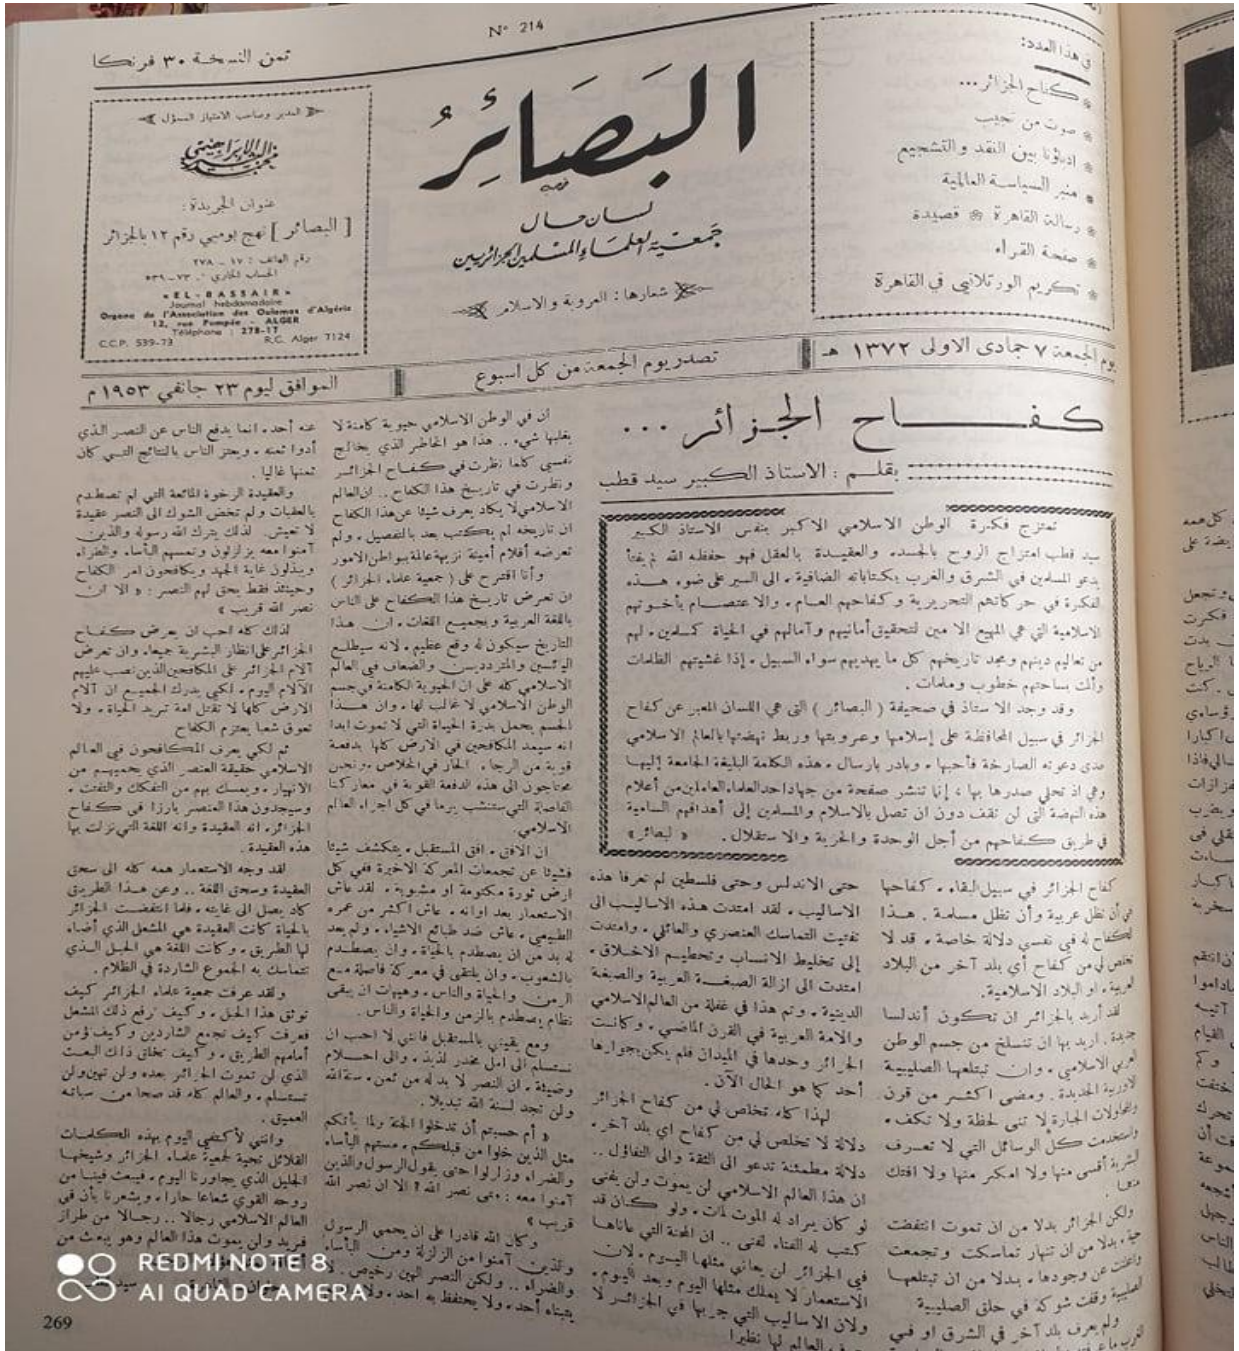 N° 214
ثمن النسخة ٣٠ فرنكا
المدير وصاحب الامتياز المسؤل
محمد البشير الابراهيمي
عنوان الجريدة :
[ البصائر ] نهج بومبي رقم ١٢ بالجزائر
رقم الهاتف : ١٧ – ٢٧٨
الحساب الجاري : ٧٣–٥٣٩
«EL-BASSAIR»
Journal hebdomadaire
Organe de l'Association des Oulamas d'Algérie
12, rue Pompée - ALGER
Téléphone : 278-17
C.C.P. 539-73 R.C. Alger 7124
البَصَائِرُ
لسان حال
جمعية العلماء المسلمين الجزائريين
شعارها : العروبة والاسلام
في هذا العدد:
كفاح الجزائر ...
صوت من نجيب
ادباؤنا بين النقد والتشجيع
منبر السياسة العالمية
رسالة القاهرة قصيدة
صفحة القراء
تكريم الورتلاني في القاهرة
يوم الجمعة ٧ جمادى الاولى ١٣٧٢ هـ
تصدر يوم الجمعة من كل اسبوع
الموافق ليوم ٢٣ جانفي ١٩٥٣ م
كفاح الجزائر ...
بقلم : الاستاذ الكبير سيد قطب
تمتزج فكرة الوطن الاسلامي الاكبر بنفس الاستاذ الكبير
سيد قطب امتزاج الروح بالجسد، والعقيدة بالعقل فهو حفظه الله لم يفتأ
يدعو المسلمين في الشرق والغرب بكتاباته الضافية ، الى السير على ضوء هذه
الفكرة في حركاتهم التحريرية وكفاحهم العام ، والاعتصام بأخوتهم
الاسلامية التي هي المهيع الامين لتحقيق أمانيهم وآمالهم في الحياة كمسلمين ، لهم
من تعاليم دينهم ومجد تاريخهم كل ما يهديهم سواء السبيل ، إذا غشيتهم الظلمات
وألمت بساحتهم خطوب وملمات .
وقد وجد الاستاذ في صحيفة ( البصائر ) التى هي اللسان المعبر عن كفاح
الجزائر في سبيل المحافظة على إسلامها وعروبتها وربط نهضتها بالعالم الاسلامي
صدى دعوته الصارخة فأحبها ، وبادر بارسال ، هذه الكلمة البليغة الجامعة إليها
وهي اذ تحلي صدرها بها ، إنما تنشر صفحة من جهاد احد العلماء العاملين من أعلام
هذه النهضة التى لن تقف دون ان تصل بالاسلام والمسلمين إلى أهدافهم السامية
في طريق كفاحهم من أجل الوحدة والحرية والاستقلال . « لبصائر»
كفاح الجزائر في سبيل البقاء ، كفاحها
هي أن تظل عربية وأن تظل مسلمة . هذا
الكفاح له في نفسي دلالة خاصة ، قد لا
تخلص لي من كفاح أي بلد آخر من البلاد
العربية، او البلاد الاسلامية.
لقد أريد بالجزائر ان تكون أندلسا
جديدة . اريد بها ان تنسلخ من جسم الوطن
العربي الاسلامي ، وان تبتلعها الصليبية
الاوربية الجديدة . ومضى اكثر من قرن
والمحاولات الجبارة لا تنى لحظة ولا تكف،
واستخدمت كل الوسائل التي لا تعرف
البشرية أقسى منها ولا امكر منها ولا افتك
منها .
ولكن الجزائر بدلا من ان تموت انتفضت
حية ، بدلا من ان تنهار تماسكت وتجمعت
واعلنت عن وجودها ، بدلا من ان تبتلعها
الصليبية وقفت شوكة في حلق الصليبية
ولم يعرف بلد آخر في الشرق او في
حتى الاندلس وحتى فلسطين لم تعرفا هذه
الاساليب ، لقد امتدت هذه الاساليب الى
تفتيت التماسك العنصري والعائلي ، وامتدت
إلى تخليط الانساب وتحطيم الاخلاق ،
امتدت الى ازالة الصبغة العربية والصبغة
الدينية ، وتم هذا في غفلة من العالم الاسلامي
والامة العربية في القرن الماضي ، وكانت
الجزائر وحدها في الميدان فلم يكن بجوارها
أحد كما هو الحال الآن .
لهذا كله تخلص لي من كفاح الجزائر
دلالة لا تخلص لي من كفاح اي بلد آخر،
دلالة مطمئنة تدعو الى الثقة والى التفاؤل ..
ان هذا العالم الاسلامي لن يموت ولن يفنى
لو كان يراد له الموت لمات ، ولو كان قد
كتب له الفناء لفنى .. ان المحنة التي عاناها
في الجزائر لن يعاني مثلها اليوم ، لان
الاستعمار لا يملك مثلها اليوم وبعد اليوم ،
ولان الاساليب التي جربها في الجزائر لا
يعرف العالم لها نظيرا
ان في الوطن الاسلامي حيوية كامنة لا
يغلبها شيء .. هذا هو الخاطر الذي يخالج
نفسي كلما نظرت في كفاح الجزائر
ونظرت في تاريخ هذا الكفاح .. ان العالم
الاسلامي لا يكاد يعرف شيئا عن هذا الكفاح
ان تاريخه لم يكتب بعد بالتفصيل ، ولم
تعرضه أقلام أمينة نزيهة عالمة بواطن الامور
وأنا اقترح على ( جمعية علماء الجزائر )
ان تعرض تاريخ هذا الكفاح على الناس
باللغة العربية وبجميع اللغات ، ان هذا
التاريخ سيكون له وقع عظيم ، لانه سيطلع
اليائسين والمترددين والضعاف في العالم
الاسلامي كله على ان الحيوية الكامنة في جسم
الوطن الاسلامي لا غالب لها ، وان هذا
الجسم يحمل بذرة الحياة التي لا تموت ابدا
انه سيمد المكافحين في الارض كلها بدفعة
قوية من الرجاء . الحار في الخلاص ، ونحن
محتاجون الى هذه الدفعة القوية في معاركنا
الفاصلة التي ستنشب يوما في كل اجزاء العالم
الاسلامي.
ان الافق ، افق المستقبل ، يتكشف شيئا
فشيئا عن تجمعات المعركة الاخيرة ففي كل
ارض ثورة مكتومة او مشبوبة ، لقد عاش
الاستعمار بعد اوانه ، عاش اكثر من عمره
الطبيعي ، عاش ضد طبائع الاشياء ، ولم يعد
له بد من ان يصطدم بالحياة ، وان يصطدم
بالشعوب ، وان يلتقى في معركة فاصلة مع
الزمن والحياة والناس ، وهيهات ان يبقى
نظام يصطدم بالزمن والحياة والناس .
ومع يقيني بالمستقبل فانني لا احب ان
نستسلم الى امل مخدر لذيذ ، والى احلام
وضيئة ، ان النصر لا بد له من ثمن ، سنة الله
ولن تجد لسنة الله تبديلا .
« أم حسبتم أن تدخلوا الجنة ولما يأتكم
مثل الذين خلوا من قبلكم ، مستهم البأساء
والضراء وزلزلوا حتى يقول الرسول والذين
آمنوا معه : متى نصر الله ؟ الا ان نصر الله
قريب »
وكان الله قادرا على ان يحمي الرسول
والذين آمنوا من الزلزلة ومن البأساء
والضراء .. ولكن النصر الهين رخيص ، لا
يتبناه أحد، ولا يحتفظ به احد ، ولا
عنه أحد، انما يدفع الناس عن النصر الذي
أدوا ثمنه ، ويعتز الناس بالنتائج التي كان
ثمنها غاليا .
والعقيدة الرخوة المائعة التي لم تصطدم
بالعقبات ولم تخض الشوك الى النصر عقيدة
لا تعيش. لذلك يترك الله رسوله والذين
آمنوا معه يزلزلون وتمسهم البأساء والضراء
ويبذلون غاية الجهد ويكافحون امر الكفاح
وحينئذ فقط يحق لهم النصر : « الا ان
نصر الله قريب »
لذلك كله احب ان يعرض كفاح
الجزائر على انظار البشرية جميعا، وان تعرض
آلام الجزائر على المكافحين الذين نصب عليهم
الآلام اليوم ، لكي يدرك الجميع ان آلام
الارض كلها لا تقتل امة تريد الحياة ، ولا
تعوق شعبا يعتزم الكفاح
ثم لكي يعرف المكافحون في العالم
الاسلامي حقيقة العنصر الذي يحميهم من
الانهيار ، ويمسك بهم من التفكك والتفتت ،
وسيجدون هذا العنصر بارزا في كفاح
الجزائر، انه العقيدة وانه اللغة التي نزلت بها
هذه العقيدة .
لقد وجه الاستعمار همه كله الى سحق
العقيدة وسحق اللغة .. وعن هذا الطريق
كاد يصل الى غايته ، فلما انتفضت الجزائر
بالحياة كانت العقيدة هي المشعل الذي أضاء
لها الطريق ، وكانت اللغة هي الحبل الذي
تتماسك به الجموع الشاردة في الظلام .
ولقد عرفت جمعية علماء الجزائر كيف
توثق هذا الحبل ، وكيف ترفع ذلك المشعل
فعرفت كيف تجمع الشاردين وكيف تؤمن
أمامهم الطريق ، وكيف تخلق ذلك البعث
الذي لن تموت الجزائر بعده ولن تهين ولن
تستسلم ، والعالم كله قد صحا من سباته
العميق .
وانني لأكتفي اليوم بهذه الكلمات
القلائل تحية لجمعية علماء الجزائر وشيخها
الجليل الذي يجاورنا اليوم ، فيبعث فينا من
روحه القوي شعاعا حارا، ويشعرنا بأن في
العالم الاسلامي رجالا .. رجالا من طراز
فريد ولن يموت هذا العالم وهو يبعث من
REDMI NOTE 8
AI QUAD CAMERA
269